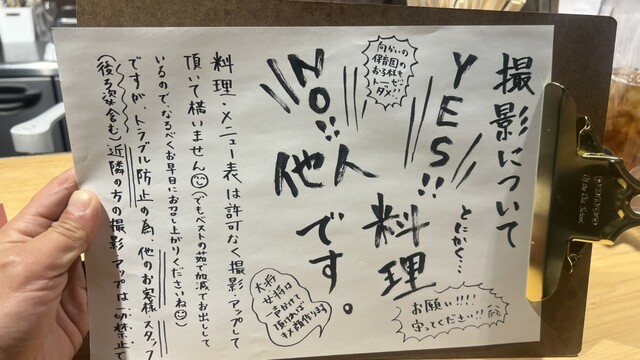 撮影について
とにかく…
YES!! 料理
NO!! 他人です。
向かいの
保育園の
お子様も
トーゼン
ダメ!!
お願い!!!!
守ってください!!
大将
女将は
一声かけて
頂ければ
キメ顔作ります
料理・メニュー表は許可なく撮影・アップして
頂いて構いません☺(でもベストの茹で加減でお出しして
いるので、なるべくお早目にお召し上がりくださいね☺)
ですが、トラブル防止の為、他のお客様、スタッフ
(後ろ姿含む)近隣の方の撮影・アップは一切禁止で